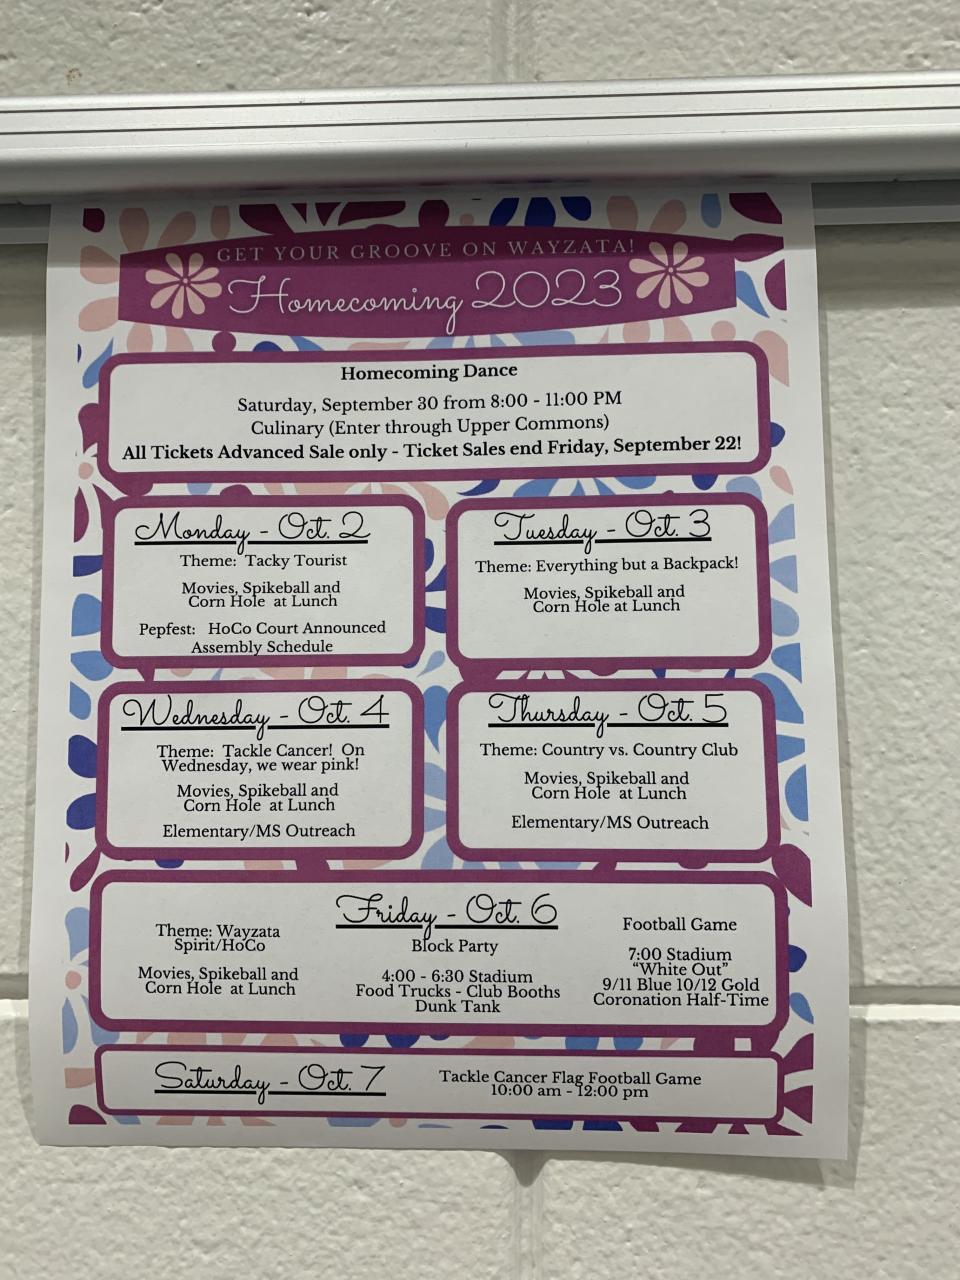 GET YOUR GROOVE ON WAYZATA!
Homecoming 2023
Homecoming Dance
Saturday, September 30 from 8:00 - 11:00 PM
Culinary (Enter through Upper Commons)
All Tickets Advanced Sale only - Ticket Sales end Friday, September 22!
Monday - Oct. 2
Theme: Tacky Tourist
Movies, Spikeball and
Corn Hole at Lunch
Pepfest: HoCo Court Announced
Assembly Schedule
Tuesday - Oct. 3
Theme: Everything but a Backpack!
Movies, Spikeball and
Corn Hole at Lunch
Wednesday - Oct. 4
Theme: Tackle Cancer! On
Wednesday, we wear pink!
Movies, Spikeball and
Corn Hole at Lunch
Elementary/MS Outreach
Thursday - Oct. 5
Theme: Country vs. Country Club
Movies, Spikeball and
Corn Hole at Lunch
Elementary/MS Outreach
Friday - Oct. 6
Theme: Wayzata
Spirit/HoCo
Movies, Spikeball and
Corn Hole at Lunch
Block Party
4:00 - 6:30 Stadium
Food Trucks - Club Booths
Dunk Tank
Football Game
7:00 Stadium
“White Out”
9/11 Blue 10/12 Gold
Coronation Half-Time
Saturday - Oct. 7
Tackle Cancer Flag Football Game
10:00 am - 12:00 pm